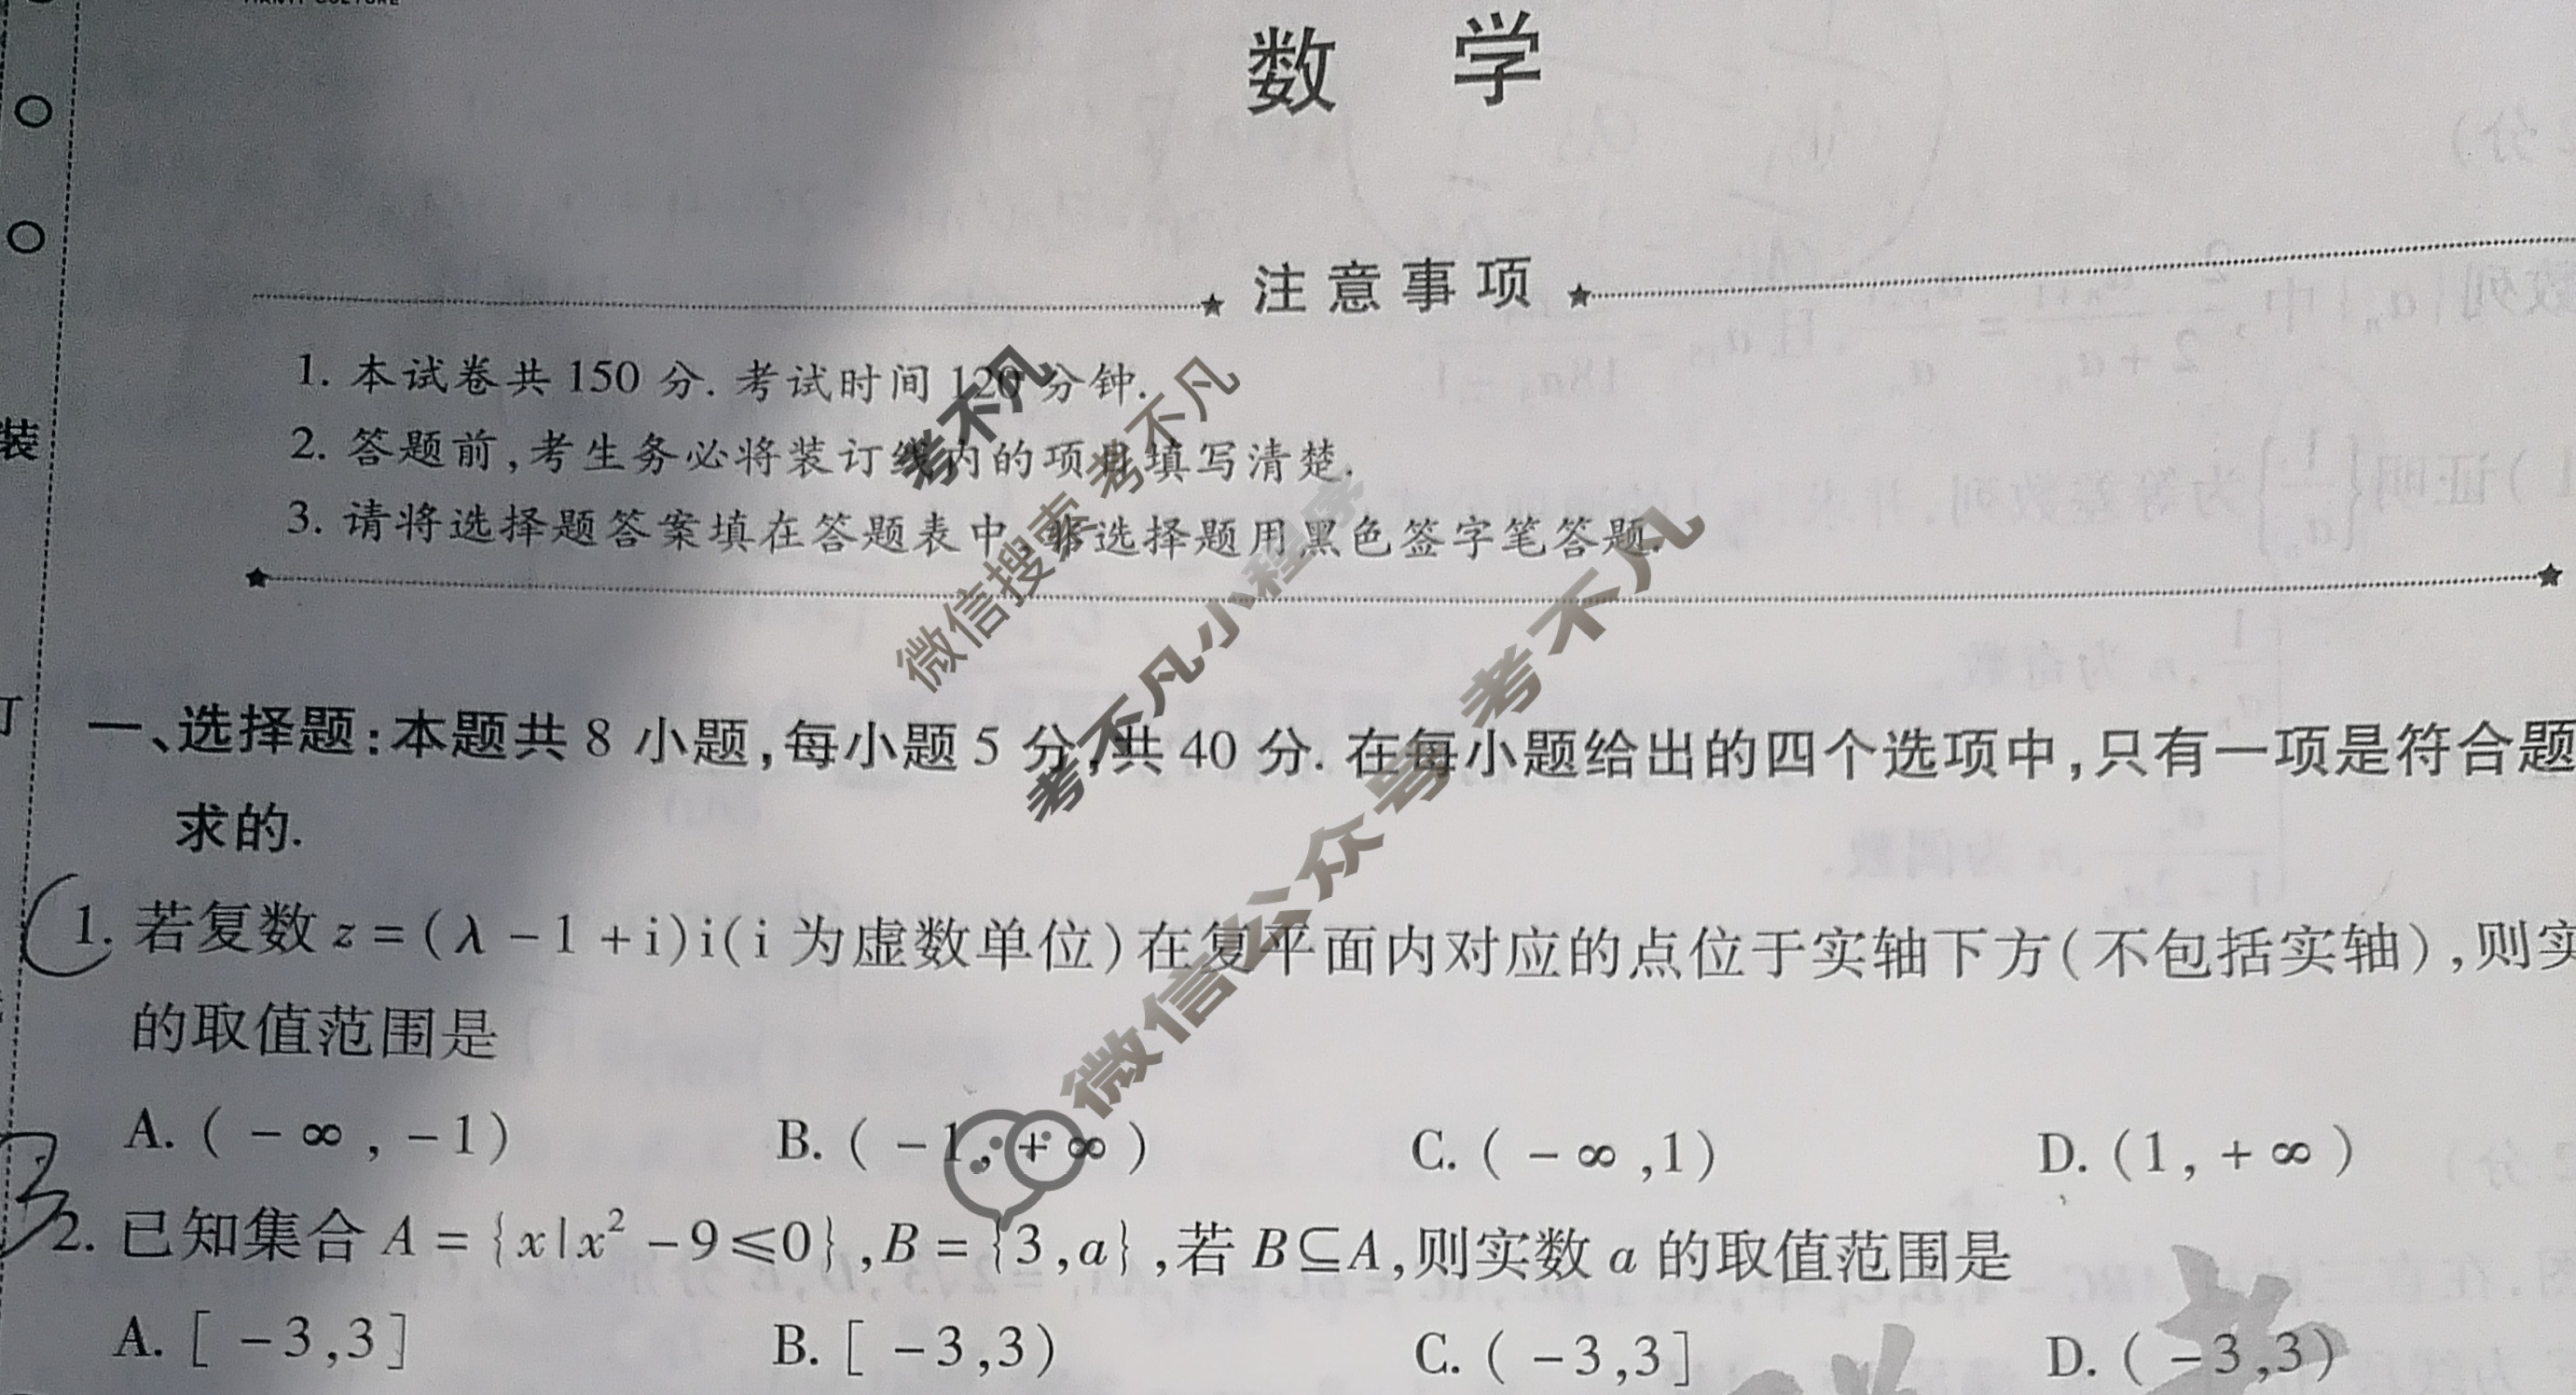 数 学
注意事项
1. 本试卷共 150 分. 考试时间 120 分钟.
2. 答题前,考生务必将装订线内的项目填写清楚.
3. 请将选择题答案填在答题表中,非选择题用黑色签字笔答题.
装
订
一、选择题:本题共 8 小题,每小题 5 分,共 40 分. 在每小题给出的四个选项中,只有一项是符合题
求的.
1. 若复数 z = (λ - 1 + i)i(i 为虚数单位)在复平面内对应的点位于实轴下方(不包括实轴),则实
的取值范围是
A. ( - ∞ , - 1) B. ( - 1, + ∞ ) C. ( - ∞ ,1) D. (1, + ∞ )
2. 已知集合 A = {x|x² - 9≤0},B = {3,a},若 B⊆A,则实数 a 的取值范围是
A. [ - 3,3] B. [ - 3,3) C. ( - 3,3] D. ( - 3,3)
考不凡
微信搜索 考不凡
考不凡小程序
微信公众号 考不凡